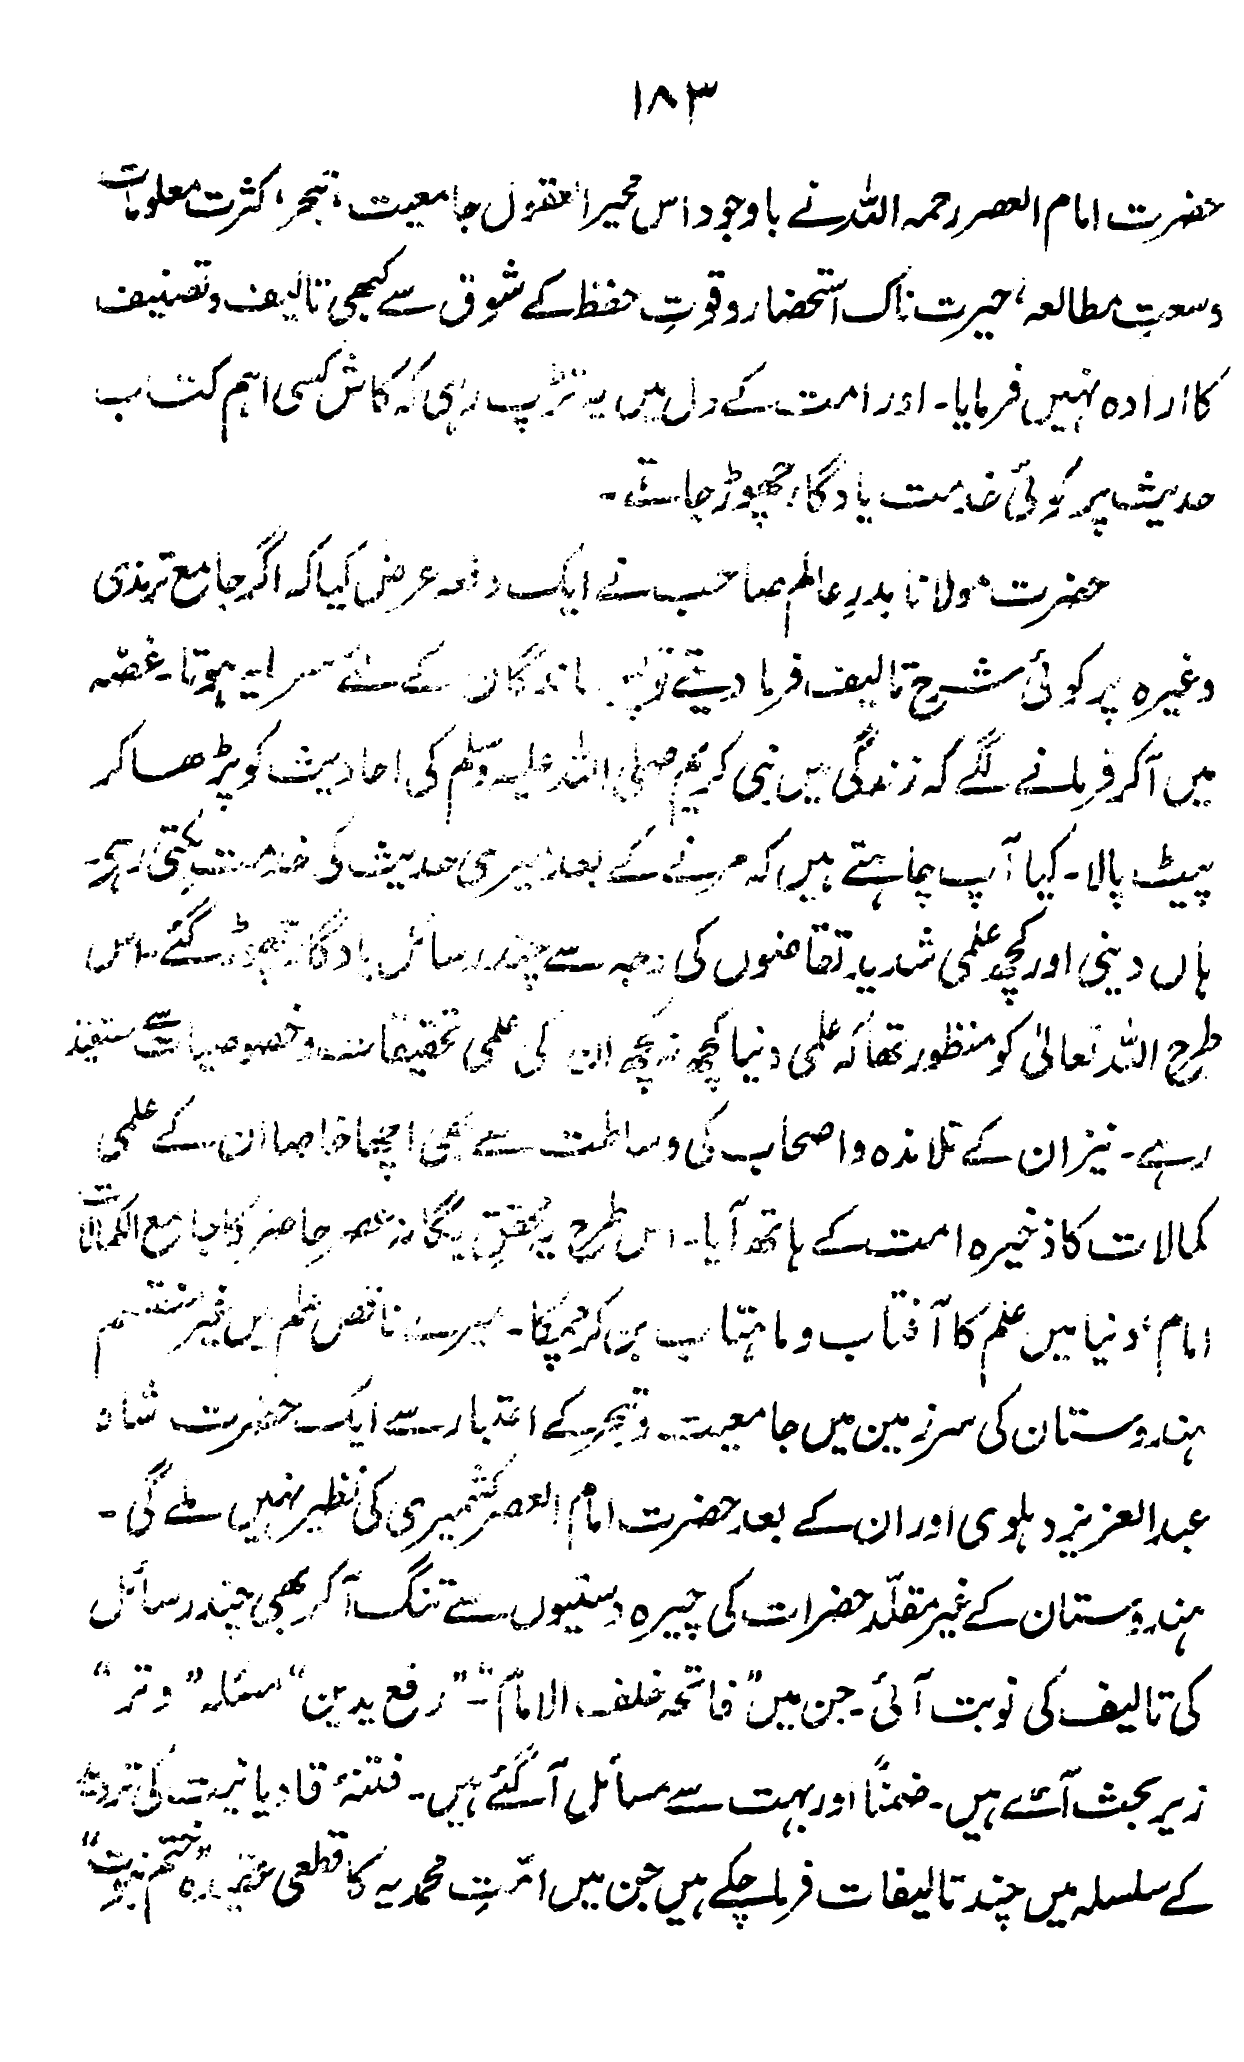 ۱۸۳
حضرت امام العصر رحمہ اللہ نے باوجود اس محیر العقول جامعیت، تبحر، کثرت معلومات
وسعتِ مطالعہ، حیرت ناک استحضار و قوتِ حفظ کے شوق سے کبھی تالیف و تصنیف
کا ارادہ نہیں فرمایا۔ اور امت کے دل میں یہ تڑپ رہی کہ کاش کسی اہم کتاب
حدیث پر کوئی خدمت یادگار چھوڑ جاتے۔
حضرت مولانا بدرِ عالم صاحب نے ایک دفعہ عرض کیا کہ اگر جامع ترمذی
وغیرہ پر کوئی شرح تالیف فرما دیتے تو پس ماندگان کے لئے سرمایہ ہوتا۔ غصّہ
میں آکر فرمانے لگے کہ زندگی میں نبی کریم صلی اللہ علیہ وسلم کی احادیث کو پڑھا کر
پیٹ پالا۔ کیا آپ چاہتے ہیں کہ مرنے کے بعد میری حدیث کی خدمت بکتی رہے۔
ہاں دینی اور کچھ علمی شدید تقاضوں کی وجہ سے چند رسائل یادگار چھوڑ گئے۔ اس
طرح اللہ تعالیٰ کو منظور تھا کہ علمی دنیا کچھ نہ کچھ ان کی علمی تحقیقات و خصوصیات سے مستفیذ
رہے۔ نیز ان کے تلامذہ و اصحاب کی وساطت سے بھی اچھا خاصا ان کے علمی
کمالات کا ذخیرہ امت کے ہاتھ آیا۔ اس طرح یہ محققِ یگانہ عصرِ حاضر کا جامع الکمالات
امام، دنیا میں علم کا آفتاب و ماہتاب بن کر چمکا۔ میرے ناقص علم میں غیر منقسم
ہندوستان کی سرزمین میں جامعیت و تبحر کے اعتبار سے ایک حضرت شاہ
عبدالعزیز دہلوی اور ان کے بعد حضرت امام العصر کشمیری کی نظیر نہیں ملے گی۔
ہندوستان کے غیر مقلّد حضرات کی چیرہ دستیوں سے تنگ آکر بھی چند رسائل
کی تالیف کی نوبت آئی۔ جن میں "فاتحہ خلف الامام"۔ "رفع یدین" مسئلہ "وتر"
زیر بحث آئے ہیں۔ ضمناً اور بہت سے مسائل آگئے ہیں۔ فتنۂ قادیانیت کی تردید
کے سلسلہ میں چند تالیفات فرما چکے ہیں جن میں امّتِ محمدیہ کا قطعی عقیدہ "ختم نبوت"